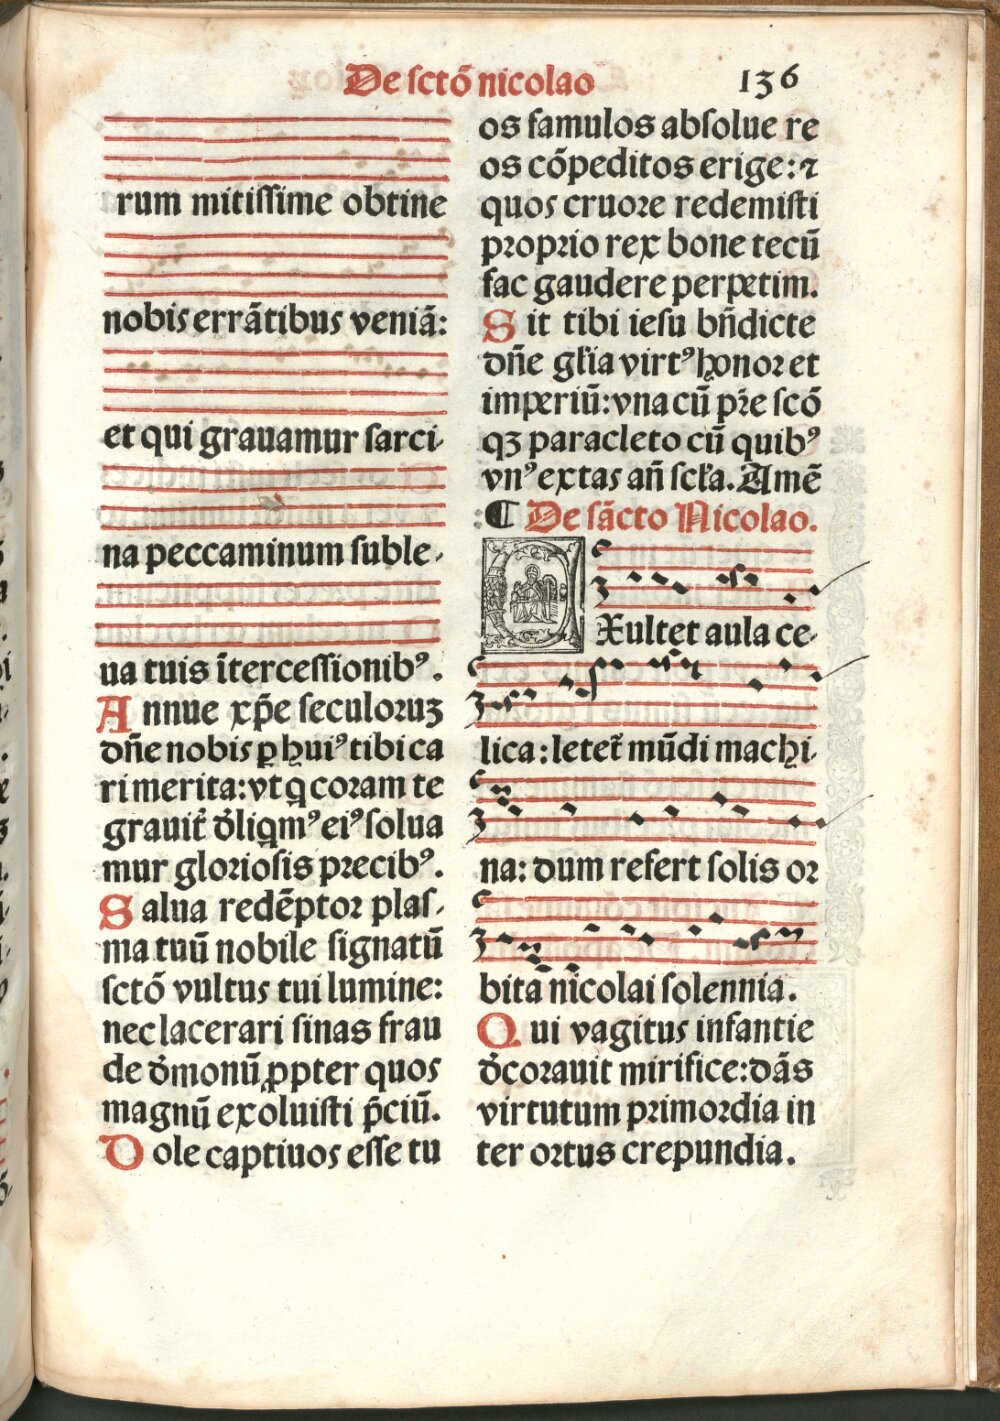 De sctō nicolao
136
rum mitissime obtine
nobis errātibus veniā:
et qui grauamur sarci-
na peccaminum suble-
ua tuis ītercessionibꝰ.
Annue xp̄e seculoruꝫ
dn̄e nobis ꝑ huiꝰ tibi ca
ri merita: vt q̄ coram te
grauit̄ d̄liqmꝰ eiꝰ solua
mur gloriosis precibꝰ.
Salua redēptor plas-
ma tuū nobile signatū
sctō vultus tui lumine:
nec lacerari sinas frau
de d̄monū ꝓpter quos
magnū exoluisti p̄ciū.
Dole captiuos esse tu
os famulos absolue re
os cōpeditos erige: ⁊
quos cruore redemisti
proprio rex bone tecū
fac gaudere perpetim.
Sit tibi iesu bn̄dicte
dn̄e gl̄ia virtꝰ honor et
imperiū: vna cū pr̄e scō
qꝫ paracleto cū quibꝰ
vnꝰ extas an̄ scl̄a. Amē
¶ De sācto Nicolao.
EXultet aula ce-
lica: letet̄ mūdi machi-
na: dum refert solis or
bita nicolai solennia.
Qui vagitus infantie
d̄corauit mirifice: dās
virtutum primordia in
ter ortus crepundia.